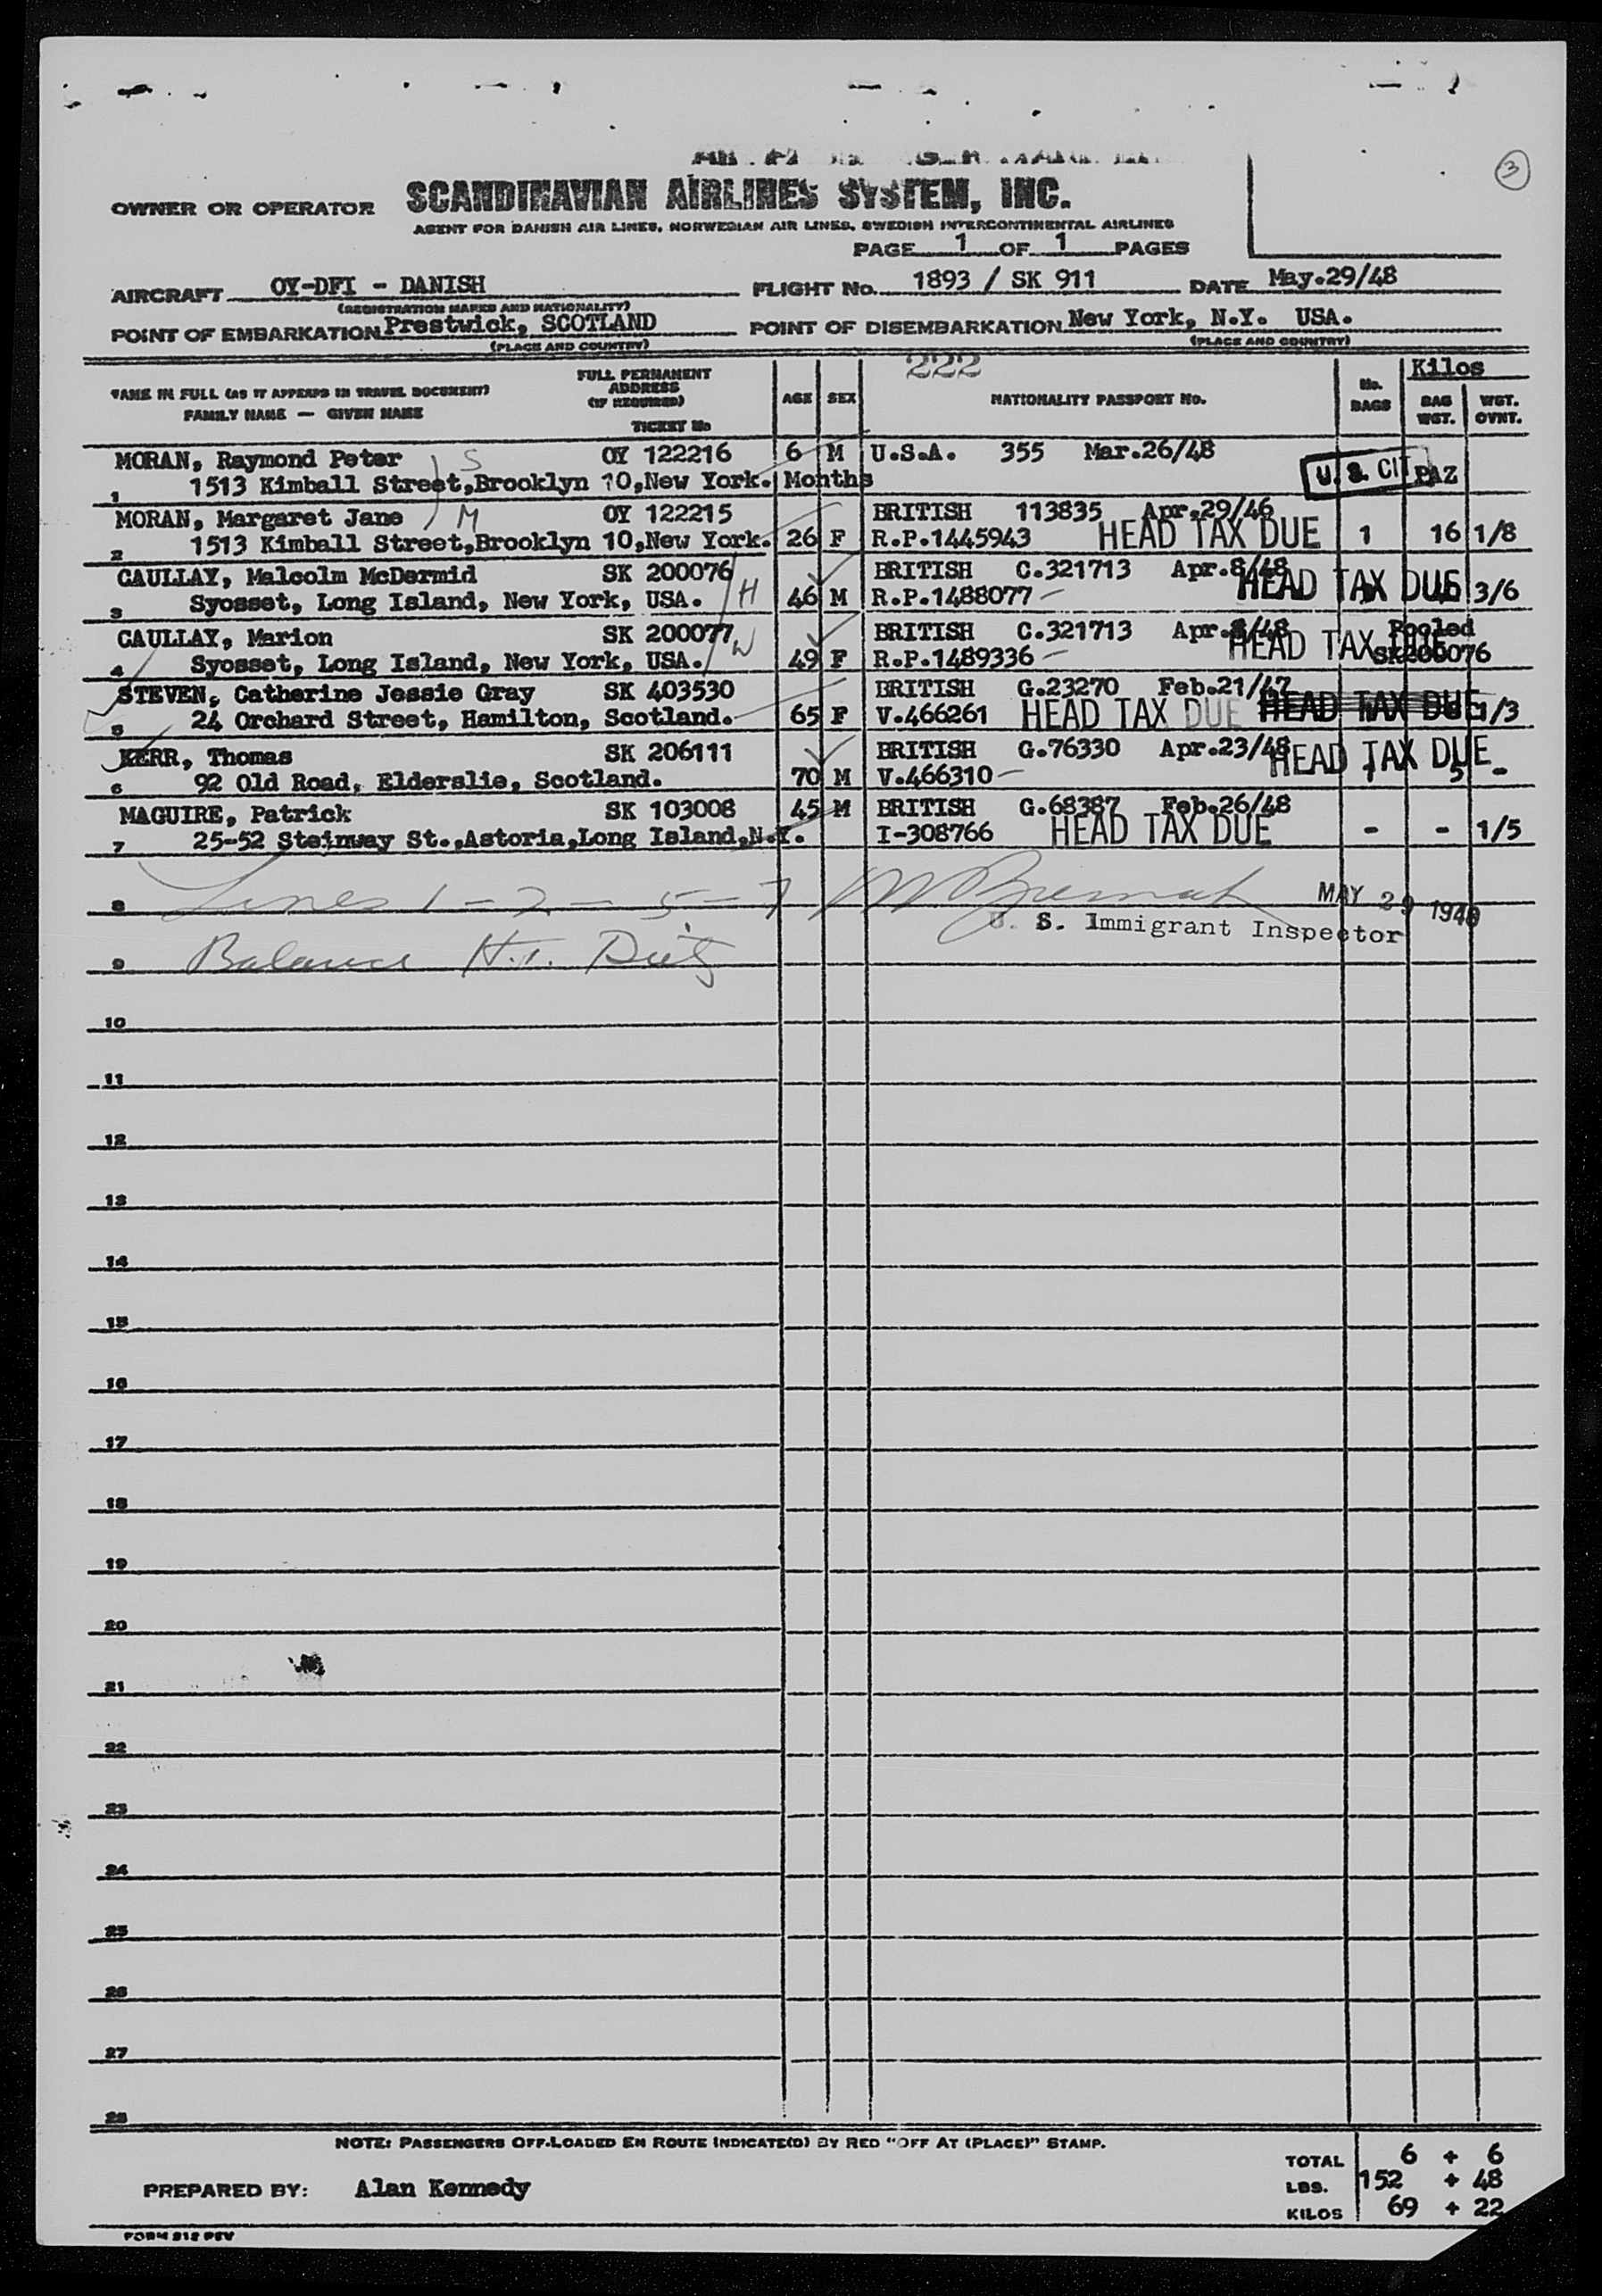 3
OWNER OR OPERATOR SCANDINAVIAN AIRLINES SYSTEM, INC.
AGENT FOR DANISH AIR LINES, NORWEGIAN AIR LINES, SWEDISH INTERCONTINENTAL AIRLINES
PAGE 1 OF 1 PAGES
AIRCRAFT OY-DFI - DANISH FLIGHT No. 1893 / SK 911 DATE May.29/48
(REGISTRATION MARKS AND NATIONALITY)
POINT OF EMBARKATION Prestwick, SCOTLAND POINT OF DISEMBARKATION New York, N.Y. USA.
(PLACE AND COUNTRY) (PLACE AND COUNTRY)
222
NAME IN FULL (AS IT APPEARS IN TRAVEL DOCUMENT)
FAMILY NAME — GIVEN NAME
FULL PERMANENT
ADDRESS
(IF REQUIRED)
TICKET No
AGE SEX NATIONALITY PASSPORT No. No. BAGS Kilos BAG WGT. WGT. OVNT.
MORAN, Raymond Peter S OY 122216 6 M U.S.A. 355 Mar.26/48
1 1513 Kimball Street,Brooklyn 10,New York. Months U. S. CIT
MORAN, Margaret Jane M OY 122215 BRITISH 113835 Apr.29/46
2 1513 Kimball Street,Brooklyn 10,New York. 26 F R.P.1445943 HEAD TAX DUE 1 16 1/8
CAULLAY, Malcolm McDermid SK 200076 BRITISH C.321713 Apr.8/48
3 Syosset, Long Island, New York, USA. H 46 M R.P.1488077 HEAD TAX DUE 3/6
CAULLAY, Marion SK 200077 W BRITISH C.321713 Apr.8/48 Pooled
4 Syosset, Long Island, New York, USA. 49 F R.P.1489336 HEAD TAX DUE SK200076
STEVEN, Catherine Jessie Gray SK 403530 BRITISH G.23270 Feb.21/47
5 24 Orchard Street, Hamilton, Scotland. 65 F V.466261 HEAD TAX DUE HEAD TAX DUE 1/3
KERR, Thomas SK 206111 BRITISH G.76330 Apr.23/48
6 92 Old Road, Elderslie, Scotland. 70 M V.466310 HEAD TAX DUE 1 5 -
MAGUIRE, Patrick SK 103008 45 M BRITISH G.68387 Feb.26/48
7 25-52 Steinway St.,Astoria,Long Island,N.Y. I-308766 HEAD TAX DUE - - 1/5
8 Lines 1 - 2 - 5 - 7 MAY 29 1948
U. S. Immigrant Inspector
9 Balance H.T.
10
11
12
13
14
15
16
17
18
19
20
21
22
23
24
25
26
27
28
NOTE: PASSENGERS OFF-LOADED EN ROUTE INDICATE(D) BY RED "OFF AT (PLACE)" STAMP.
TOTAL 6 + 6
PREPARED BY: Alan Kennedy LBS. 152 + 48
KILOS 69 + 22
FORM 212 REV